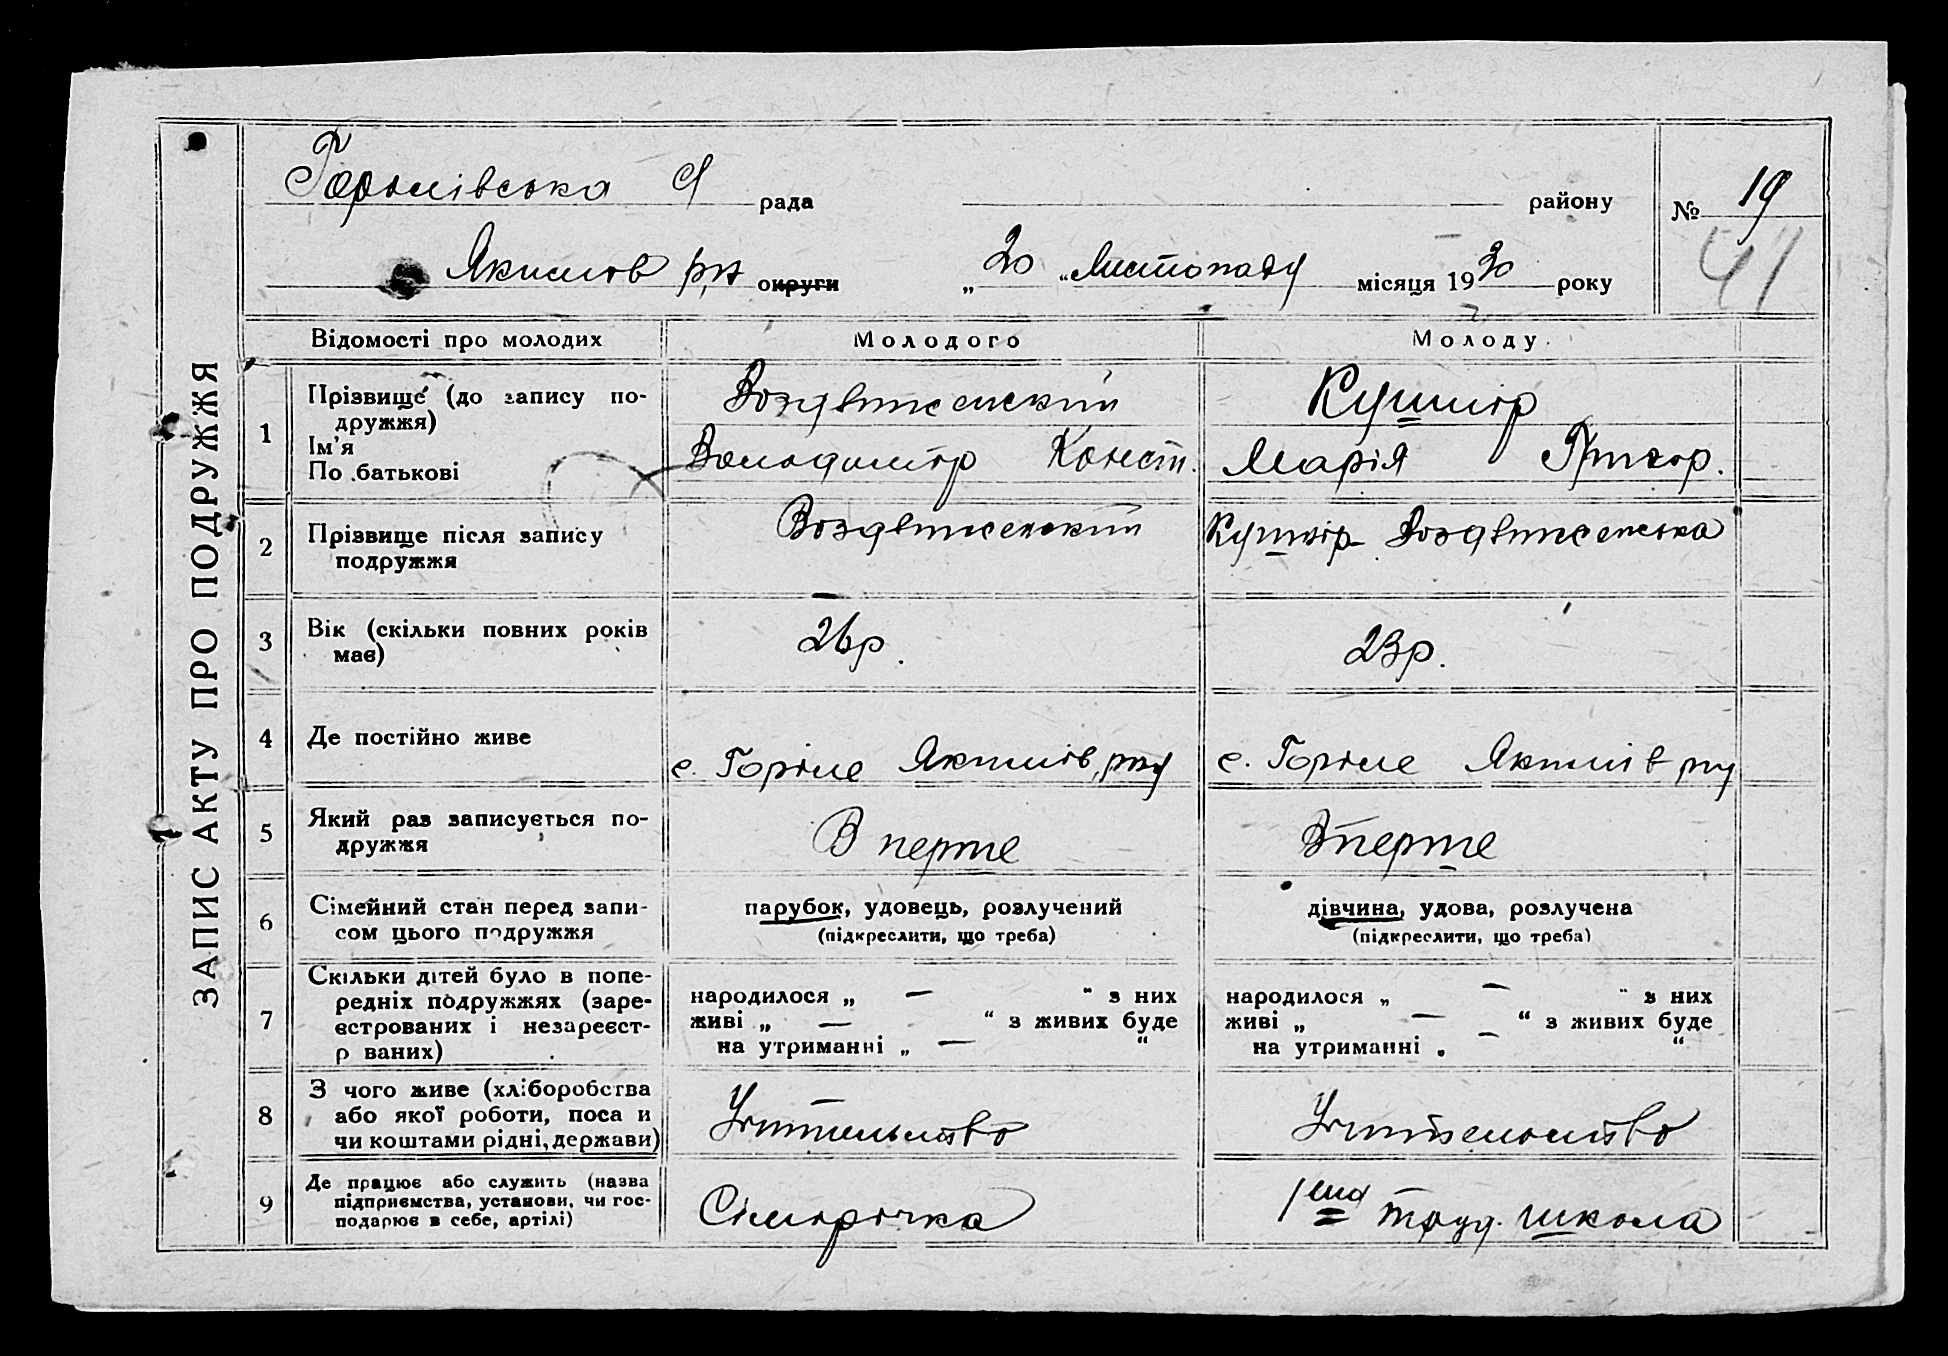 ЗАПИС АКТУ ПРО ПОДРУЖЖЯ
рада району № 19
41
Якимов р,н округи „20“ Листопаду місяця 1930 року
Відомості про молодих Молодого Молоду
1 Прізвище (до запису по-
дружжя)
Ім'я
По батькові
Воздвиженский
Володимир Конст.
Кушнір
Марія Григор.
2 Прізвище після запису
подружжя
Воздвиженский
Кушнір-Воздвиженська
3 Вік (скільки повних років
має)
26р.
23р.
4 Де постійно живе
с. Горіле Якимів, рну
с. Горіле Якимів рну
5 Який раз записується по-
дружжя
Вперше
Вперше
6 Сімейний стан перед запи-
сом цього подружжя
парубок, удовець, розлучений
(підкреслити, що треба)
дівчина, удова, розлучена
(підкреслити, що треба)
7 Скільки дітей було в попе-
редніх подружжях (заре-
єстрованих і незареєст-
р ваних)
народилося „ — “ з них
живі „ — “ з живих буде
на утриманні „ — “
народилося „ — “ з них
живі „ — “ з живих буде
на утриманні „ — “
8 З чого живе (хліборобства
або якої роботи, поса и
чи коштами рідні, держави)
Учительство
Учительство
9 Де працює або служить (назва
підприємства, установи, чи гос-
подарює в себе, артілі)
Сімирічка
1ша труд. школа